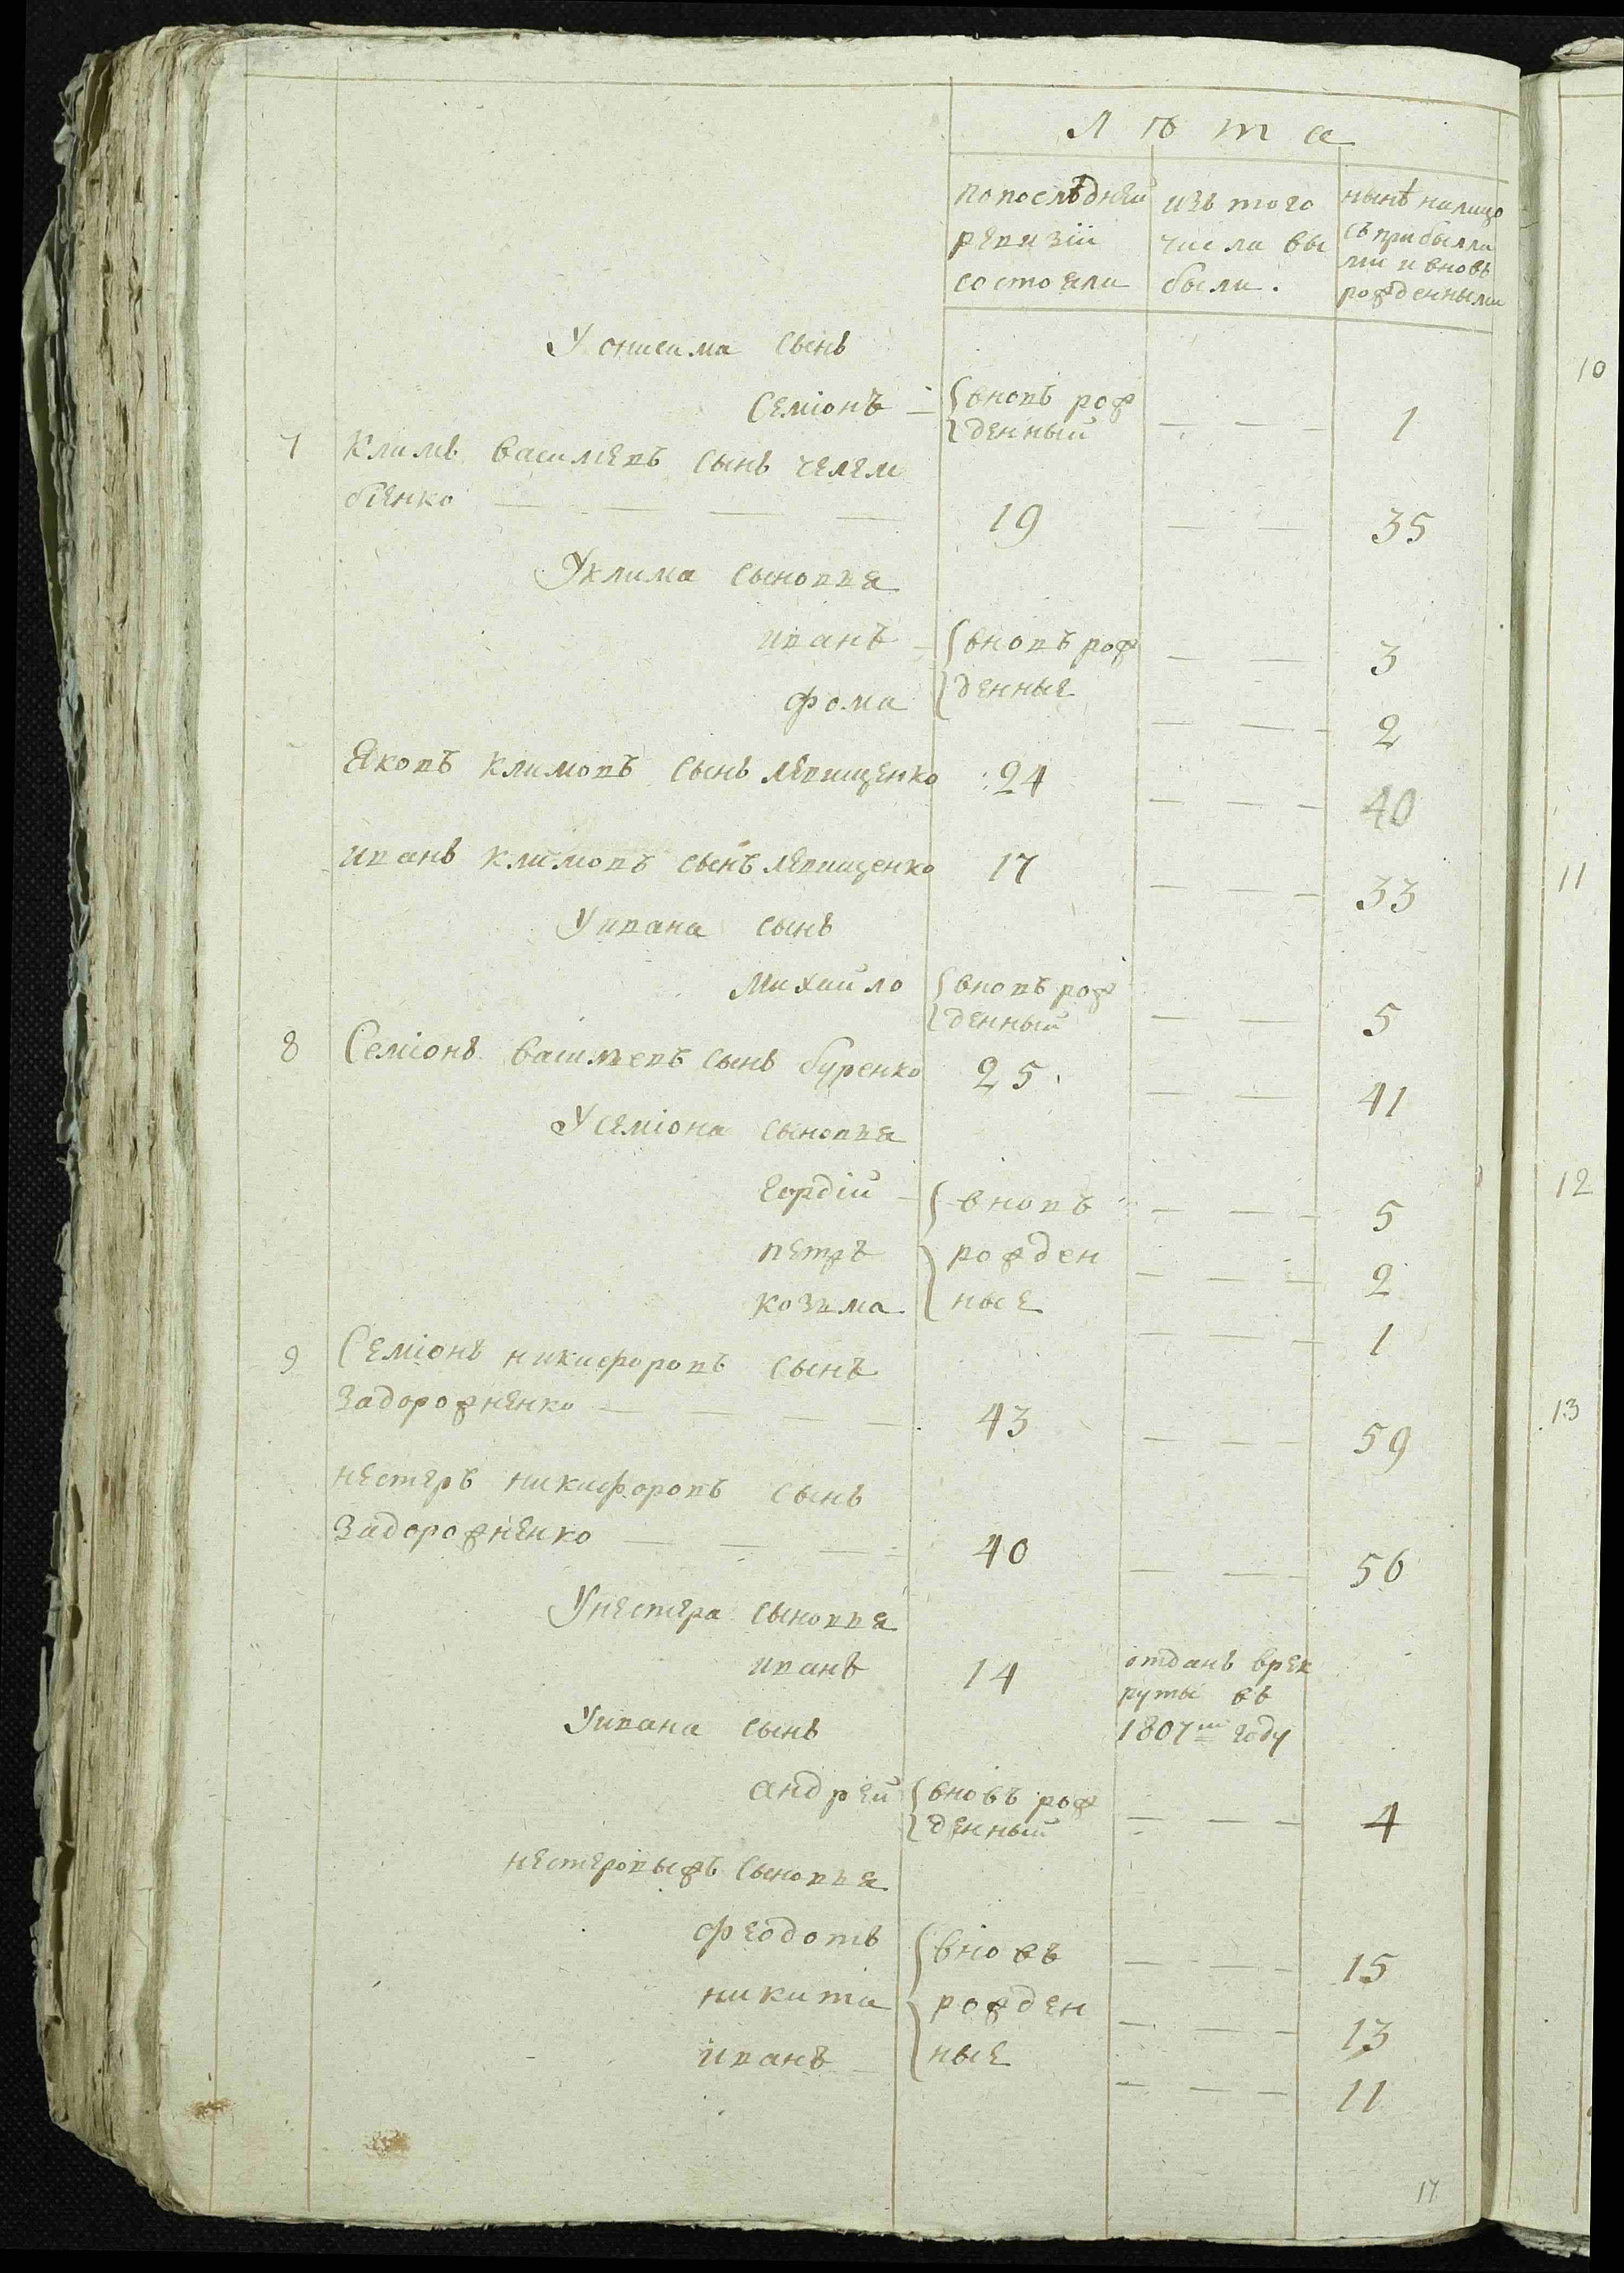 Лѣта
по послѣдней ревизіи состояли
изъ того числа выбыли.
нынѣ налицо съ прибылыми и вновь рожденными
У онисима сынъ
Семіонъ — вновъ рож 1
денный
7 Климъ васильевъ сынъ челем
біенко 19 35
У клима сыновья
иванъ вновъ рож 3
фома денные 2
Яковъ климовъ сынъ левищенко 24 40
иванъ климовъ сынъ левищенко 17 33
У ивана сынъ
Михайло вновъ рож 5
денный
8 Семіонъ васильевъ сынъ буренко 25 41
У семіона сыновья
гордій вновъ 5
петръ рожден 2
козьма ные 1
9 Семіонъ никифоровъ сынъ
Задорожненко 43 59
нестеръ никифоровъ сынъ
Задорожненко 40 56
У нестера сыновья
иванъ 14 отданъ врек
руты въ
У ивана сынъ 1807м году
андрей вновъ рож 4
денный
нестеровыжъ сыновья
феодотъ вновъ 15
никита рожден 13
иванъ ные 11
17
10
11
12
13